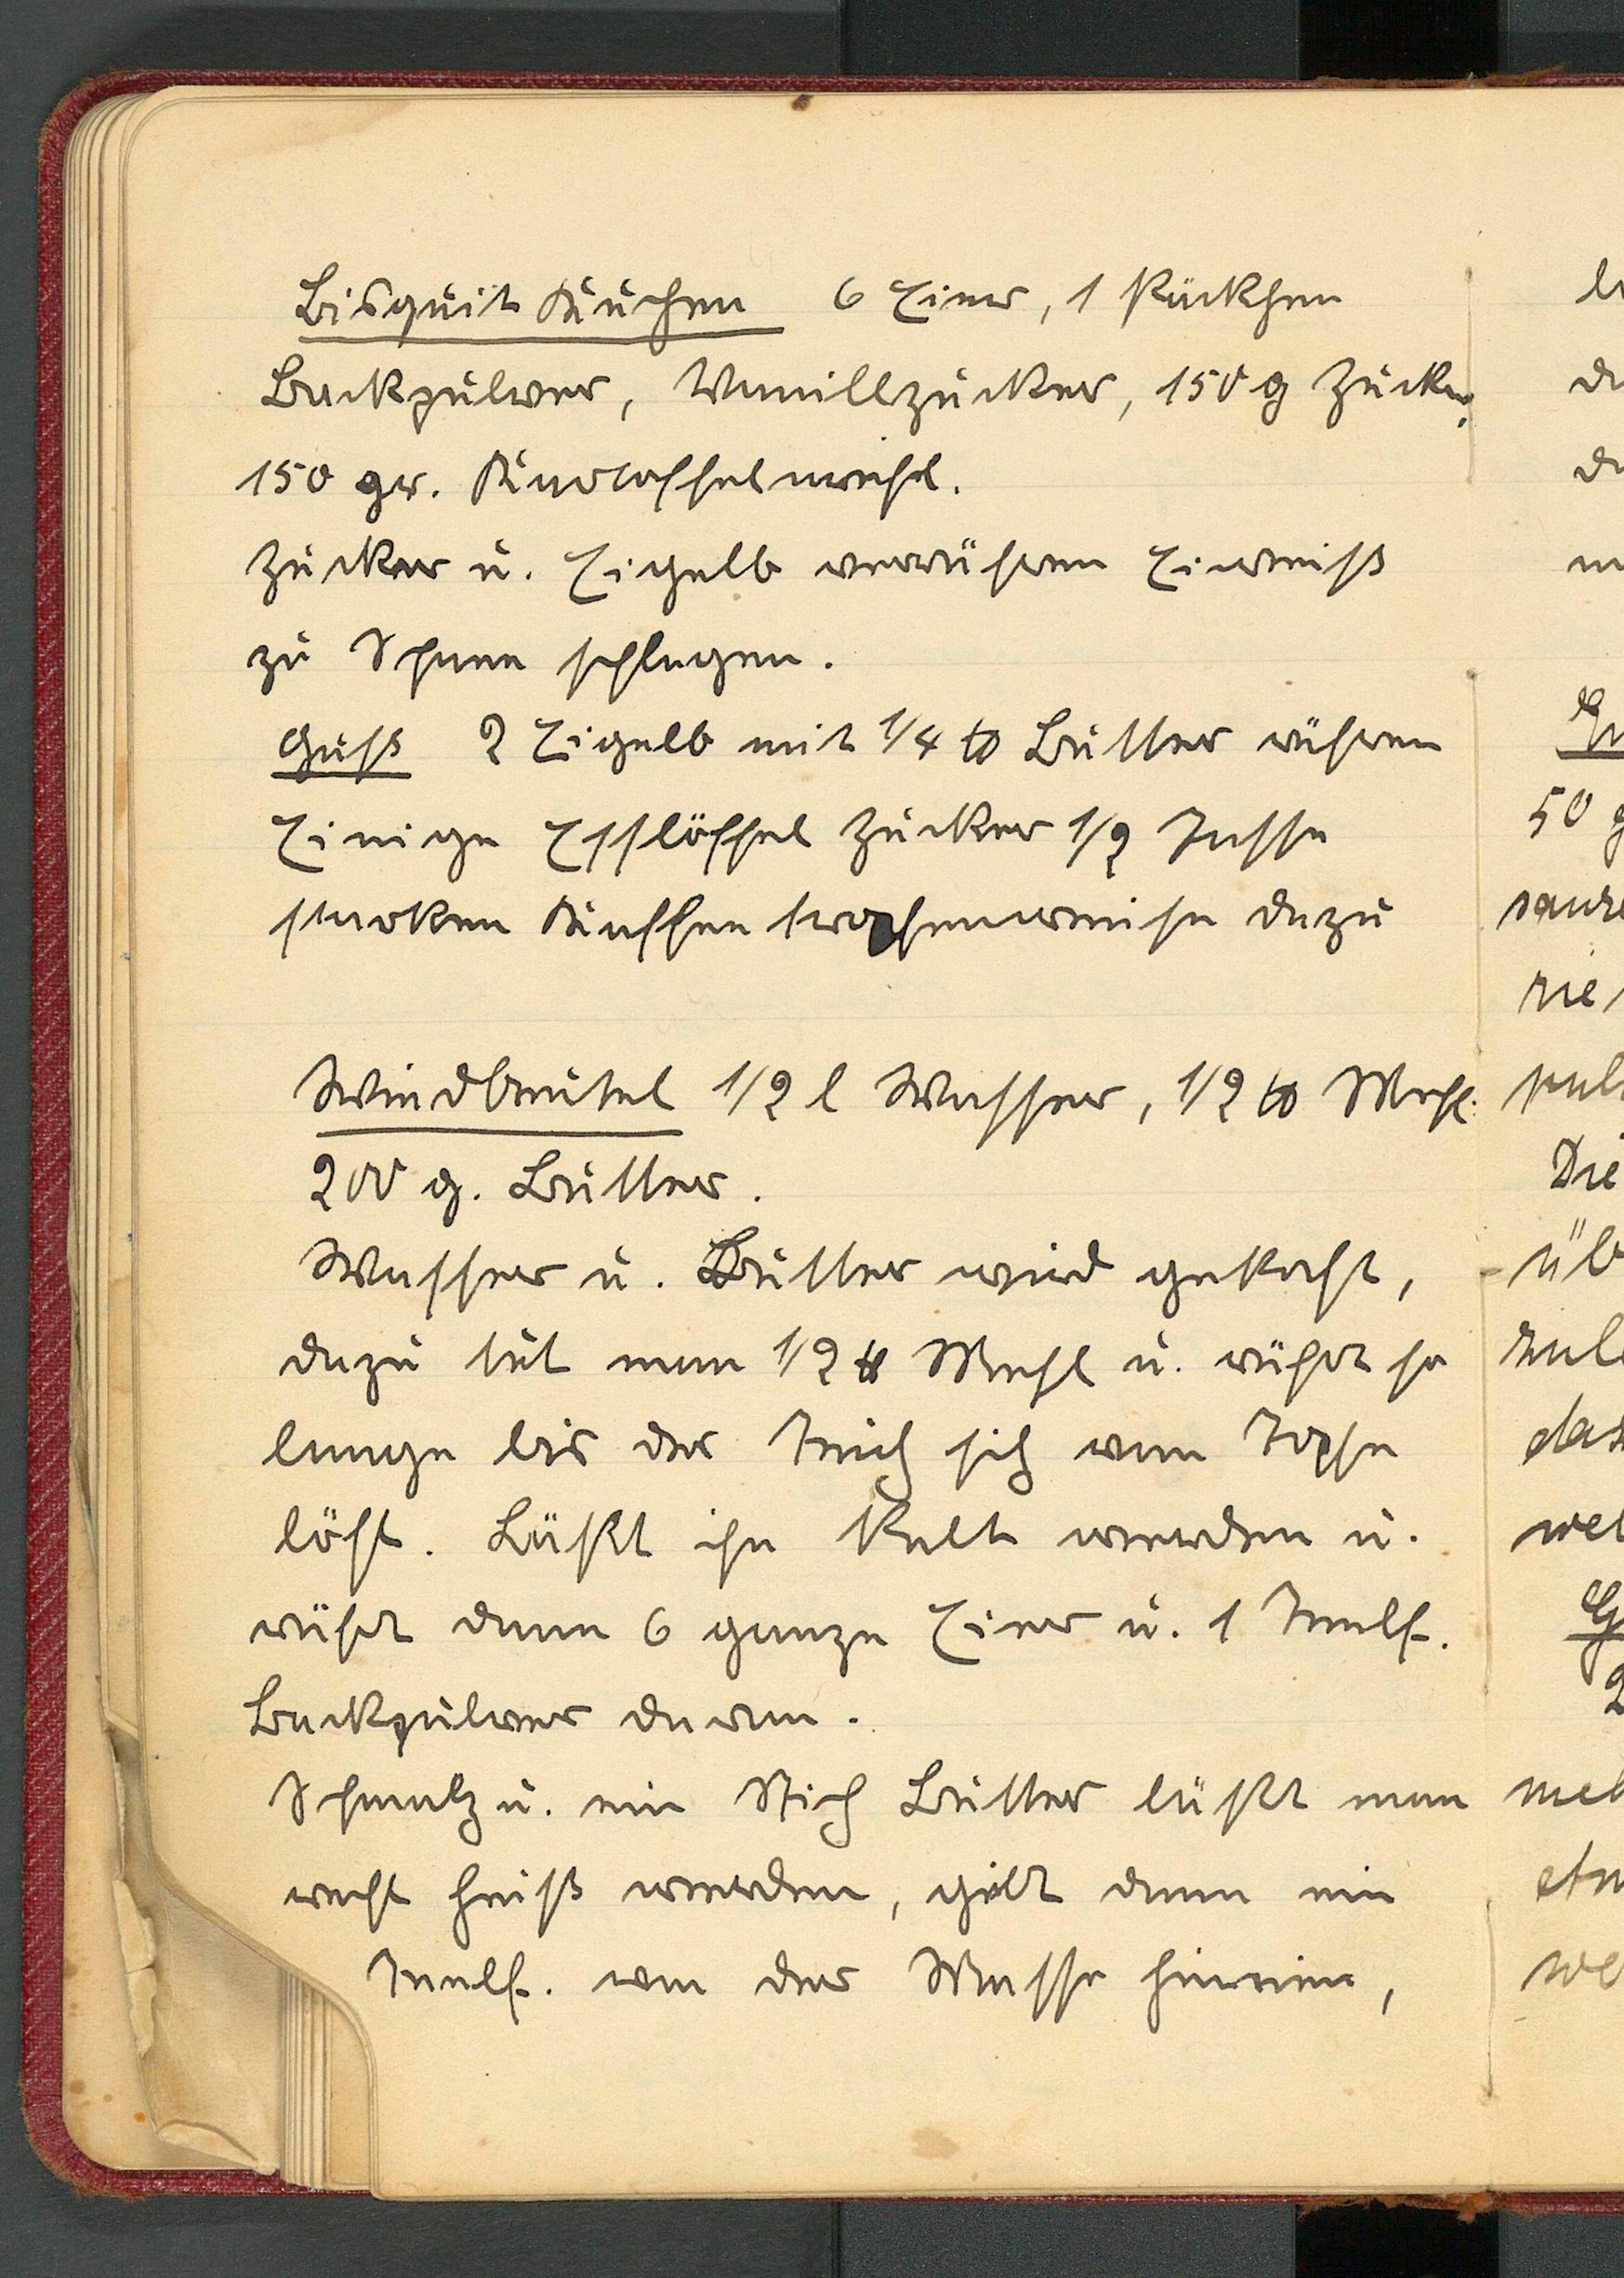 Bisquit Kuchen 6 Eier, 1 Päckchen
Backpulver, Vanillzucker, 150 g Zucker,
150 gr. Kartoffelmehl.
Zucker u. Eigelb verrühren Eiweiß
zu Schnee schlagen.
Guß 2 Eigelb mit 1/4 ℔ Butter rühren
Einige Esslöffel Zucker 1/2 Tasse
starken Kaffee tropfenweise dazu
Windbeutel 1/2 l Wasser, 1/2 ℔ Mehl
200 g. Butter.
Wasser u. Butter wird gekocht,
dazu tut man 1/2 ℔ Mehl u. rührt so
lange bis der Teich sich vom Topfe
löst. Läßt ihn kalt werden u.
rührt dann 6 ganze Eier u. 1 Teelf.
Backpulver daran.
Schmalz u. ein Stich Butter läßt man
recht heiß werden, gibt dann ein
Teelf. von der Masse hinein,
50 g
saure
Die
üb
das